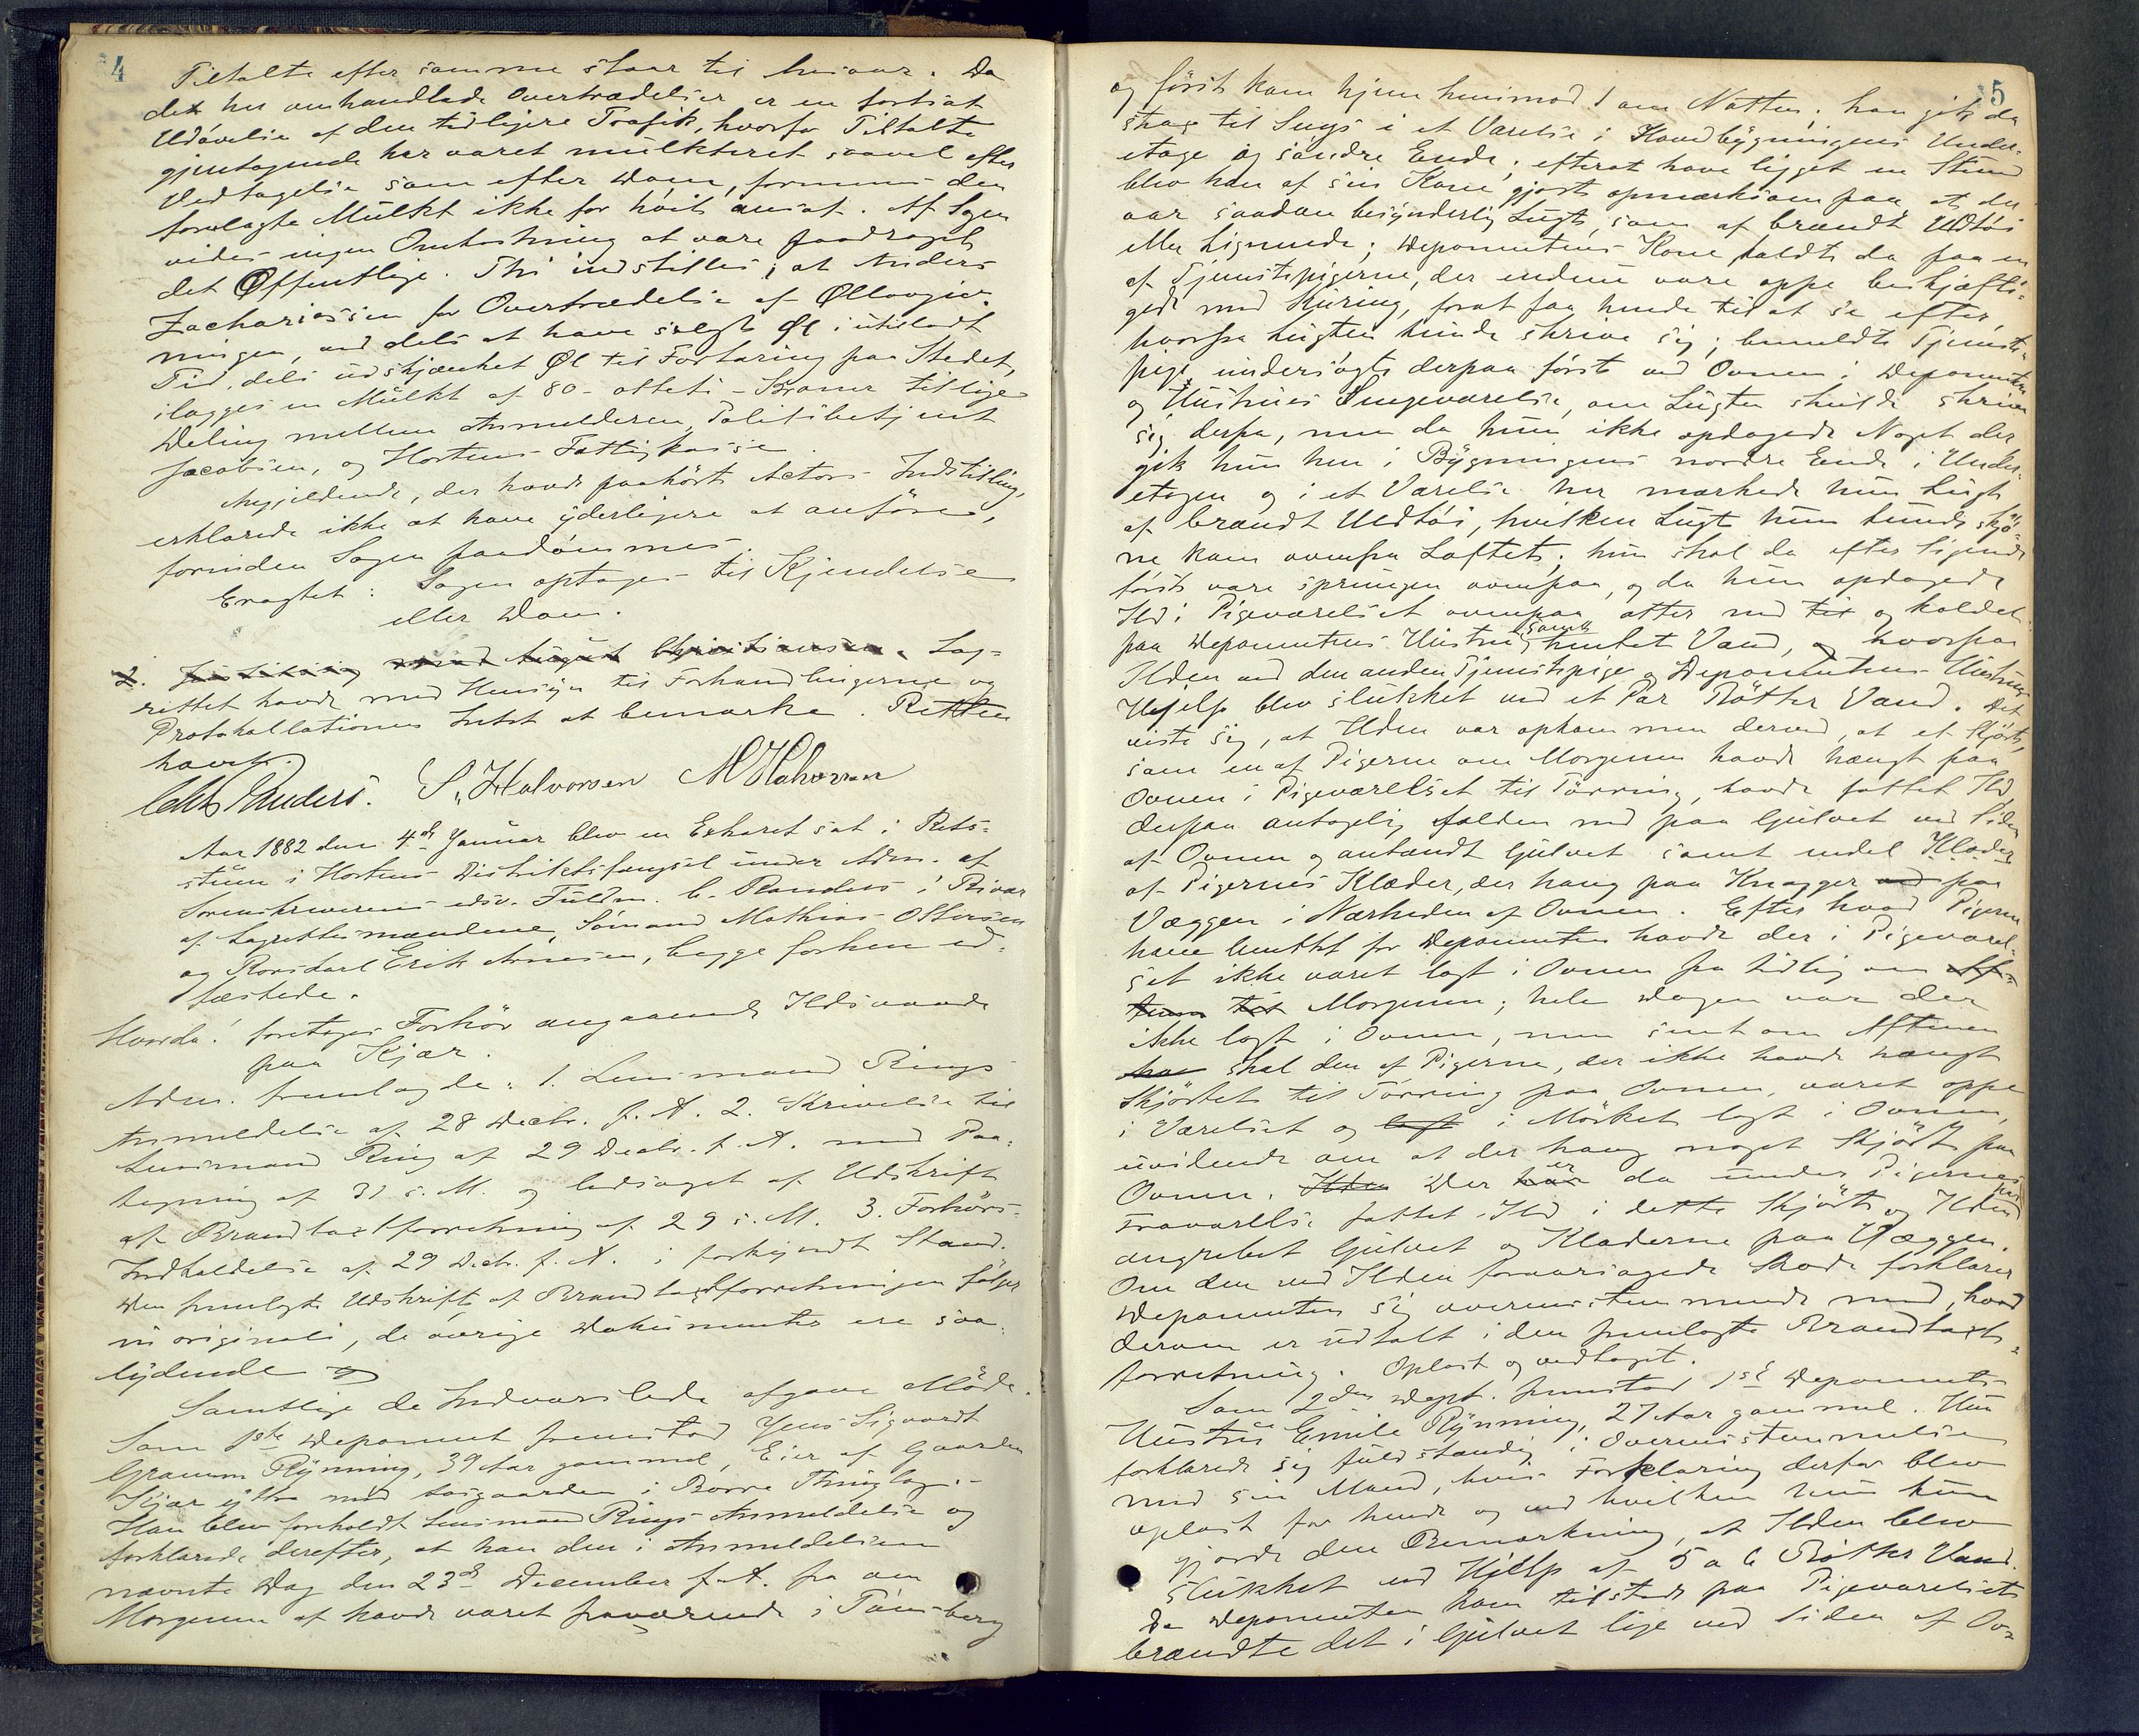 4
Tiltalte efter samme staar til Ansvar. Da
det her omhandlede Overtrædelser er en fortsat
Udøvelse af den tidligere Trafik, hvorfor Tiltalte
gjentagende har været mulkteret saavel efter
Vedtagelse som efter Dom, formenes den
forelagte Mulkt ikke for høit ansat. Af Sagen
vides ingen Omkostning at være paadraget
det Offentlige. Thi indstilles; at Anders
Zachariassen for Overtrædelse af Øllovgiv-
ningen, ved dels at have solgt Øl i utilladt
Tid, dels udskjænket Øl til Fortæring paa Stedet,
ilægges en Mulkt af 80 - otteti - Kroner til lige
Deling mellem Anmelderen, Politibetjent
Jacobsen, og Hortens Fattigkasse.
Angjældende, der havde paahørt Actors Indstilling,
erklærede ikke at have yderligere at anføre,
forinden Sagen paadømmes.
Eragtet: Sagen optages til Kjendelse
eller Dom.
2. Lag-
rettet havde med Hensyn til Forhandlingerne og
Protokollationen Intet at bemærke. Retten
hævet.
S. Halvorsen M Halvorsen
Aar 1882 den 4de Januar blev en Extraret sat i Rets-
stuen i Hortens Distriktsfængsel under Adm. af
Sorenskriverens edsv. Fuldm. C. Randers i Bivær
af Lagrettesmændene, Sømand Mathias Ottersen
og Rorskarl Erik Arnesen, begge forhen ed-
fæstede.
Hvorda! foretoges Forhør angaaende Ildsvaade
paa Kjær.
Adm. fremlagde: 1. Lensmand Rings
Anmeldelse af 28 Decbr. f. A. 2. Skrivelse til
Lensmand Ring af 29 Decbr. f. A. med Paa-
tegning af 31 s. M. og ledsaget af Udskrift
af Brandtaxtforretning af 29 s. M. 3. Forhørs-
Indkaldelse af 29 Decbr. f. A. i forkyndt Stand.
Den fremlagte Udskrift af Brandtaxtforretningen følger
in originali, de øvrige Dokumenter ere saa-
lydende
Samtlige de Indvarslede afgave Møde.
Som 1ste Deponent fremstod Jens Sigvardt
Gramm Rynning, 39 Aar gammel, Eier af Gaarden
Kjær ytre med Aasgaarden i Borre Thinglag.
Han blev foreholdt Lensmand Rings Anmeldelse og
forklarede derefter, at han den i Anmeldelsen
nævnte Dag den 23de December f. A. fra om
Morgenen af havde været fraværende i Tønsberg
5
og først kom hjem henimod 1 om Natten; han gik da
strax til Sengs i et Værelse i Hovedbygningens Under-
etage og søndre Ende; efterat have ligget en Stund
blev han af sin Kone gjort opmærksom paa at der
var saadan besynderlig Lugt, som af brændt Uldtøi
eller Lignende; Deponentens Kone kaldte da paa en
af Tjenestepigerne, der endnu vare oppe beskjæfti-
gede med Skuring, forat faa hende til at se efter,
hvorfra Lugten kunde skrive sig; bemeldte Tjeneste-
pige undersøgte derpaa først ved Ovnen i Deponenten
og Hustrues Sengeværelse, om Lugten skulde skrive
sig derfra, men da hun ikke opdagede Noget der
gik hun hen i Bygningens nordre Ende i Under-
etagen og i et Værelse her mærkede hun Lugt
af brændt Uldtøi, hvilken Lugt hun kunde skjø-
ne kom ovenfra Loftet; hun skal da efter Sigende
først være sprungen ovenpaa, og da hun opdagede
Ild i Pigeværelset ovenpaa atter ned til og kaldet
paa Deponentens Hustru, samt hentet Vand, og hvorpaa
Ilden ved den anden Tjenestepige og Deponentens Hustrues
Hjelp blev slukket ved et Par Bøtter Vand. Det
viste sig, at Ilden var opkommen derved, at et Skjørt,
som en af Pigerne om Morgenen havde hængt paa
Ovnen i Pigeværelset til Tørring, havde fattet Ild,
derpaa antagelig falden ned paa Gulvet ved Siden
af Ovnen og antændt Gulvet samt endel Klæder
af Pigernes Klæder, der hang paa Knagger ved paa
Væggen i Nærheden af Ovnen. Efter hvad Pigerne
have berettet for Deponenten havde der i Pigeværel-
set ikke været lagt i Ovnen fra tidlig om Af-
tenen til Morgenen; hele Dagen var der
ikke lagt i Ovnen, men sent om Aftenen
har skal den af Pigerne, der ikke havde hængt
Skjørtet til Tørring paa Ovnen, været oppe
i Værelset og lagt i Mørket lagt i Ovnen,
uvidende om at der hang noget Skjørt paa
Ovnen. Ilden Der har er da under Pigernes
Fraværelse fattet Ild i dette Skjørt og Ilden har
angrebet Gulvet og Klæderne paa Væggen.
Om den ved Ilden foraarsagede Skade forklarer
Deponenten sig overensstemmende med, hvad
derom er udtalt i den fremlagte Brandtaxt-
forretning. Oplæst og vedtaget.
Som 2den Depnt. fremstod 1ste Deponents
Hustru Emile Rynning, 27 Aar gammel. Hun
forklarede sig fuldstændig i Overensstemmelse
med sin Mand, hvis Forklaring derfor blev
oplæst for hende og ved hvilken hun kun
gjorde den Bemærkning, at Ilden blev
slukket ved Hjælp af 5 a 6 Bøtter Vand.
Da Deponenten kom tilstede paa Pigeværelset
brændte det i Gulvet lige ved Siden af Ov-